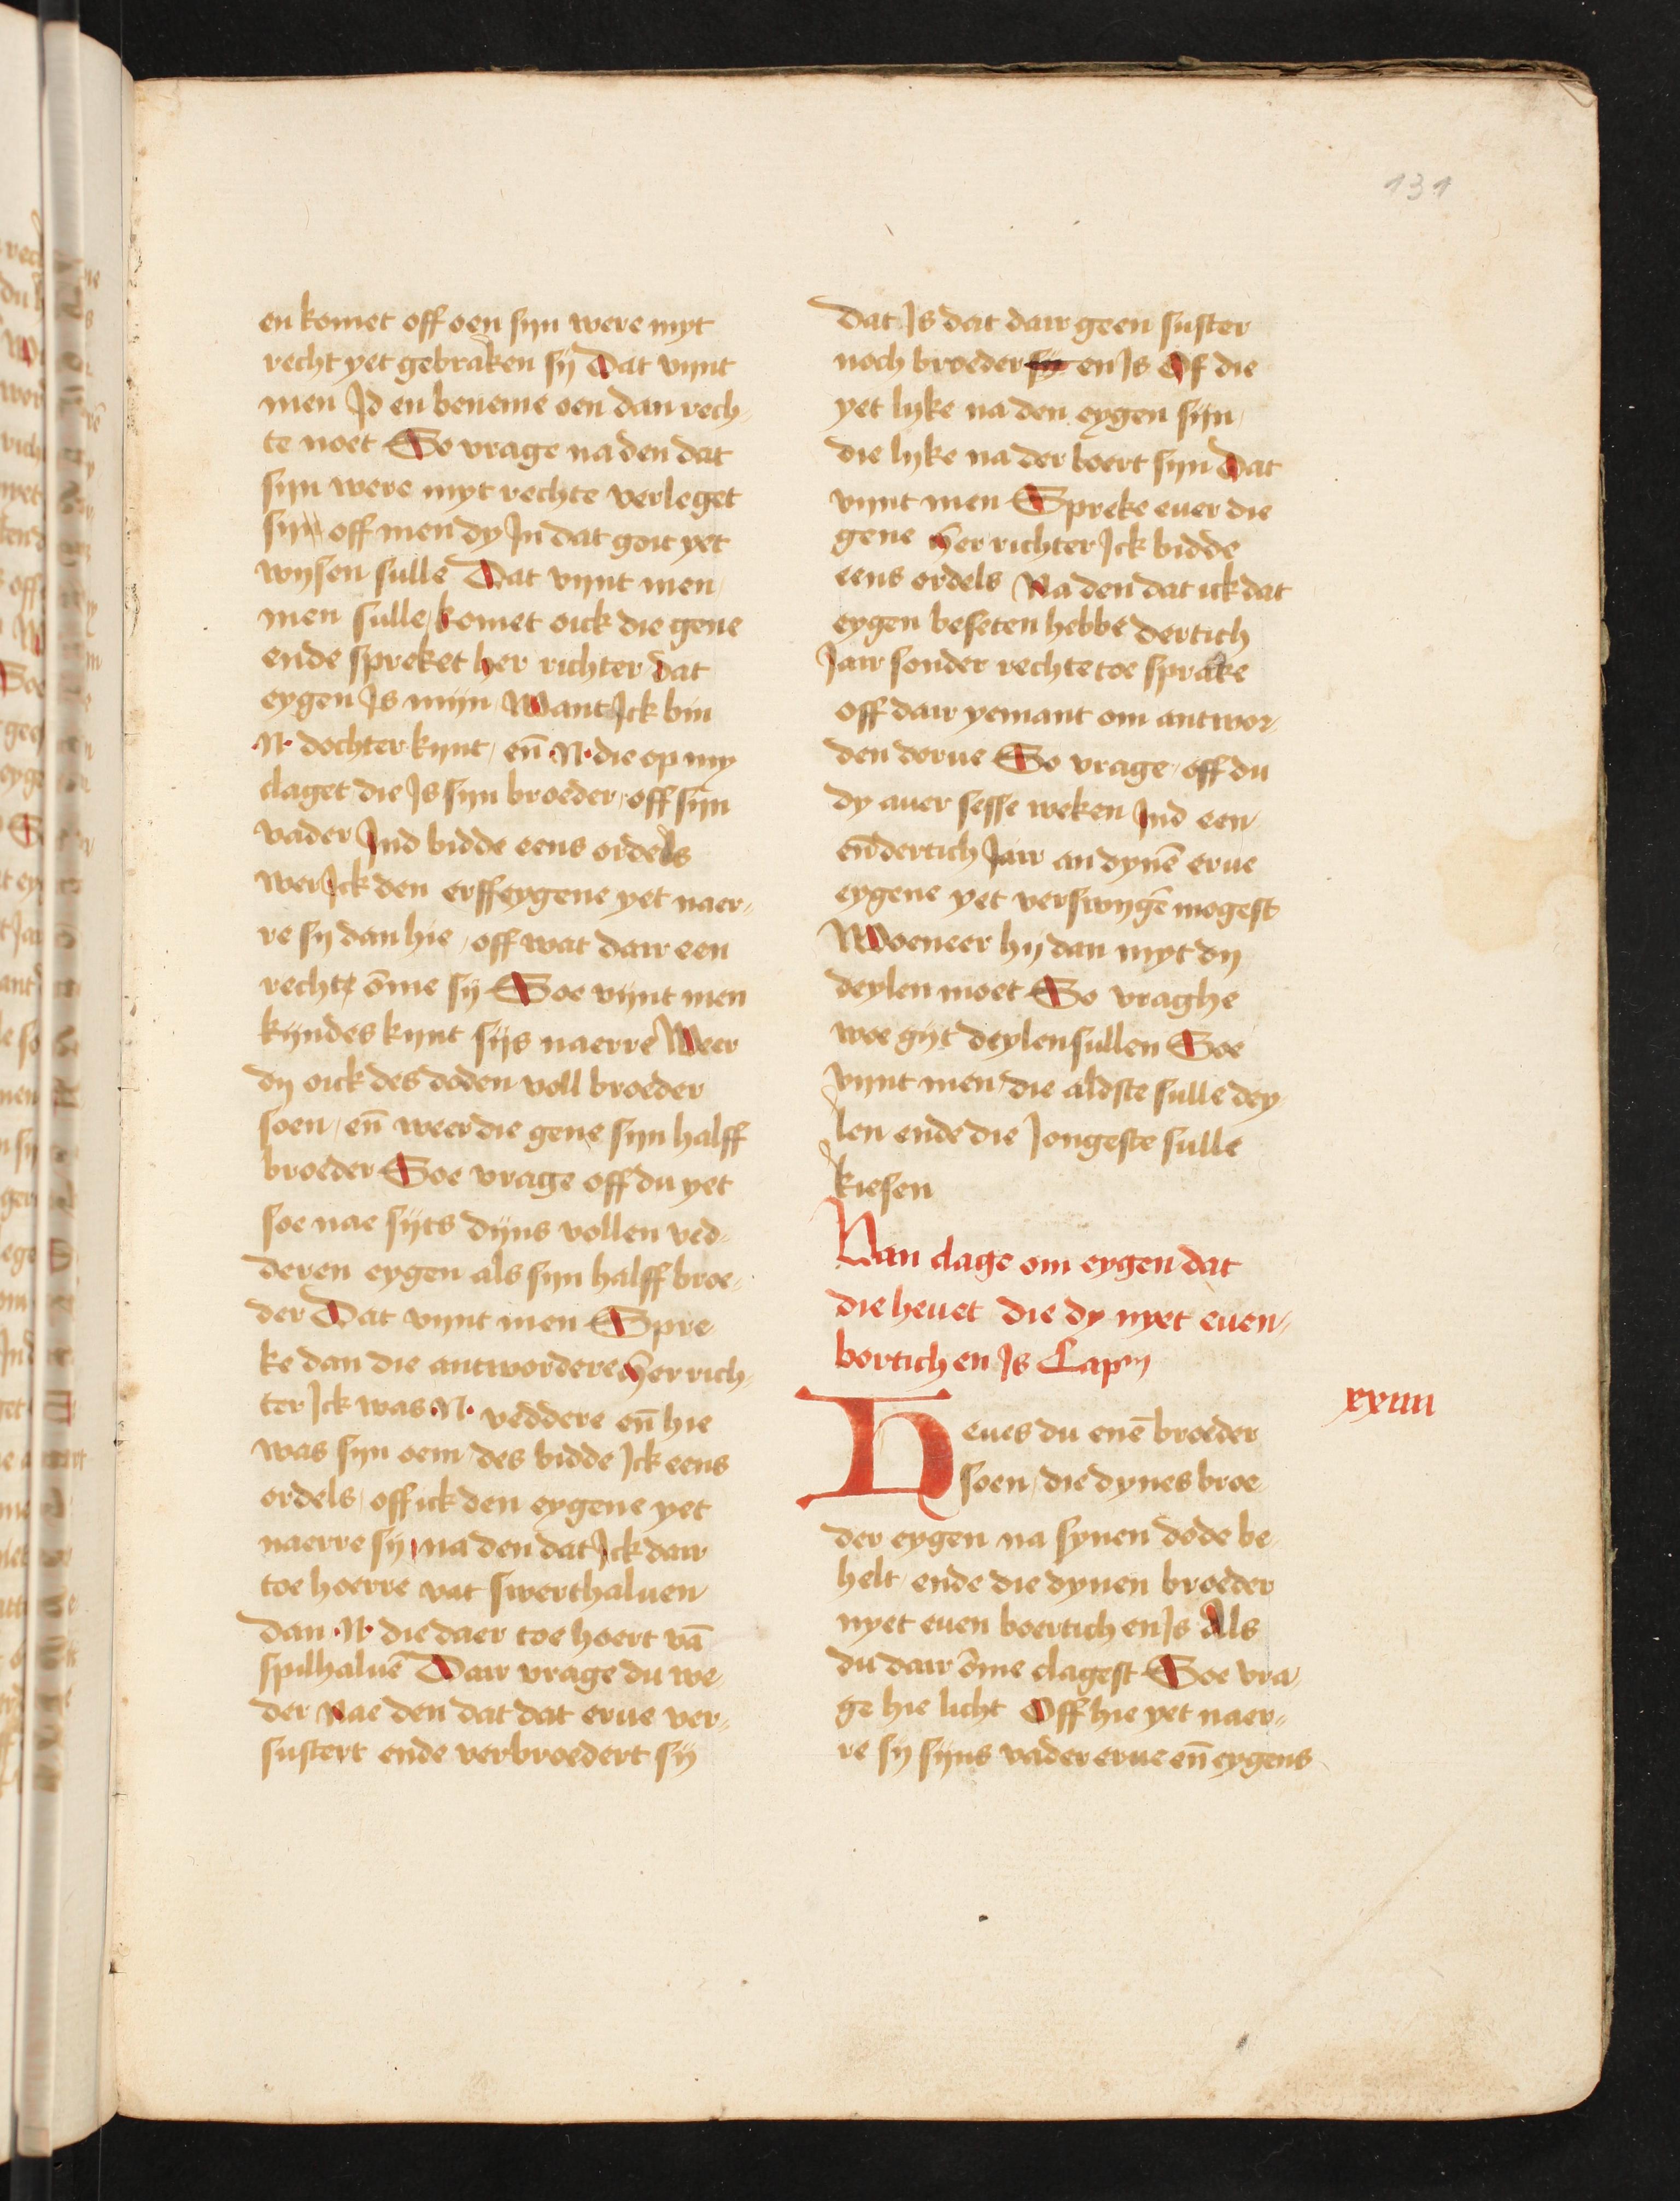 131
en komet off oen sijn were myt
recht yet gebraken sij Dat vijnt
men Jd en beneme oen dan rech-
te noet So vrage na den dat
sijn were myt rechte verleget
sijn off men dy Jn dat goit yet
wijsen sulle Dat vijnt men
men sulle komet oick die gene
ende spreket her richter dat
eygen Js mijn Want Jck bin
.N. dochter kijnt / en̄ .N. die op my
claget die Js sijn broeder / off sijn
vader Jnd bidde eens ordels
wer Jck den erffeygene yet naer-
re sij dan hie / off wat dair een
recht o̅me sij Soe vijnt men
kijndes kijnt sijs naerre Weer
dij oick des doden voll broeder
soen / en̄ weer die gene sijn halff
broeder Soe vrage off du yet
soe nae sijts dijns vollen ved-
deren eygen als sijn halff broe-
der Dat vijnt men Spre-
ke dan die antwordere Her rich-
ter Jck was .N. veddere en̄ hie
was sijn oem / des bidde Jck eens
ordels / off ick den eygene yet
naerre sij na den dat Jck dair
toe hoerre vat swerthaluen
dan .N. die daer toe hoert va̅
spilhalue̅ Dair vrage du we-
der Nae den dat dat erue ver-
sustert ende verbroedert sij
Dat Js dat dair geen suster
noch broeder sij en Js Of die
yet lyke na den eygen sijn
die lyke na der boert sijn Dat
vijnt men Spreke euer die
gene Her richter Jck bidde
eens ordels Na den dat ick dat
eygen beseten hebbe dertich
Jair sonder rechte toe sprake
off dair yemant om antwor-
den dorue So vrage / off du
dy auer sesse weken Jnd een
en̄dertich Jair an dyne̅ erue
eygene yet verswyge̅ mogest
Woeneer hij dan myt dij
deylen moet So vraghe
woe gijt deylen sullen Soe
vijnt men die aldste sulle dey-
len ende die Jongeste sulle
kiesen
Van clage om eygen dat
die heuet die dy nyet euen-
bortich en Js Capm
xxiiii
Heues du ene̅ broeder
soen / die dynes broe
der eygen na synen dode be
helt / ende die dynen broeder
nyet euen boertich en Js Als
du dair o̅me clagest Soe vra-
ge hie licht Off hie yet naer-
re sij sijns vader erue en̄ eygens